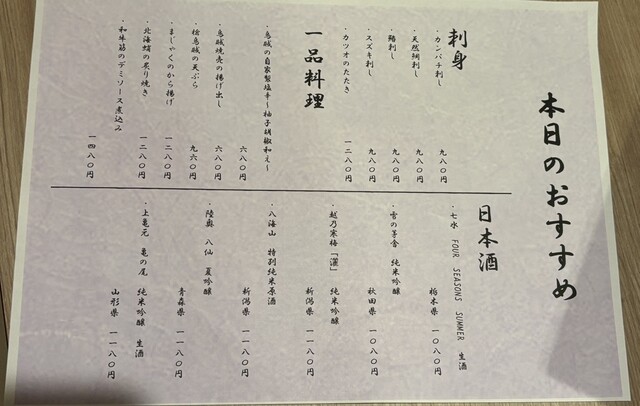 本日のおすすめ
刺身
・カンパチ刺し 九八〇円
・天然鯛刺し 九八〇円
・鯵刺し 九八〇円
・スズキ刺し 九八〇円
・カツオのたたき 一二八〇円
一品料理
・烏賊の自家製塩辛～柚子胡椒和え～ 六八〇円
・烏賊焼売の揚げ出し 六八〇円
・槍烏賊の天ぷら 九六〇円
・まじゃくのから揚げ 一二八〇円
・北海蛸の炙り焼き 一二八〇円
・和牛筋のデミソース煮込み 一四八〇円
日本酒
・七水 FOUR SEASONS SUMMER 生酒
栃木県 一〇八〇円
・雪の茅舎 純米吟醸
秋田県 一〇八〇円
・越乃寒梅「灑」 純米吟醸
新潟県 一一八〇円
・八海山 特別純米原酒
新潟県 一一八〇円
・陸奥 八仙 夏吟醸
青森県 一一八〇円
・上亀元 亀の尾 純米吟醸 生酒
山形県 一一八〇円